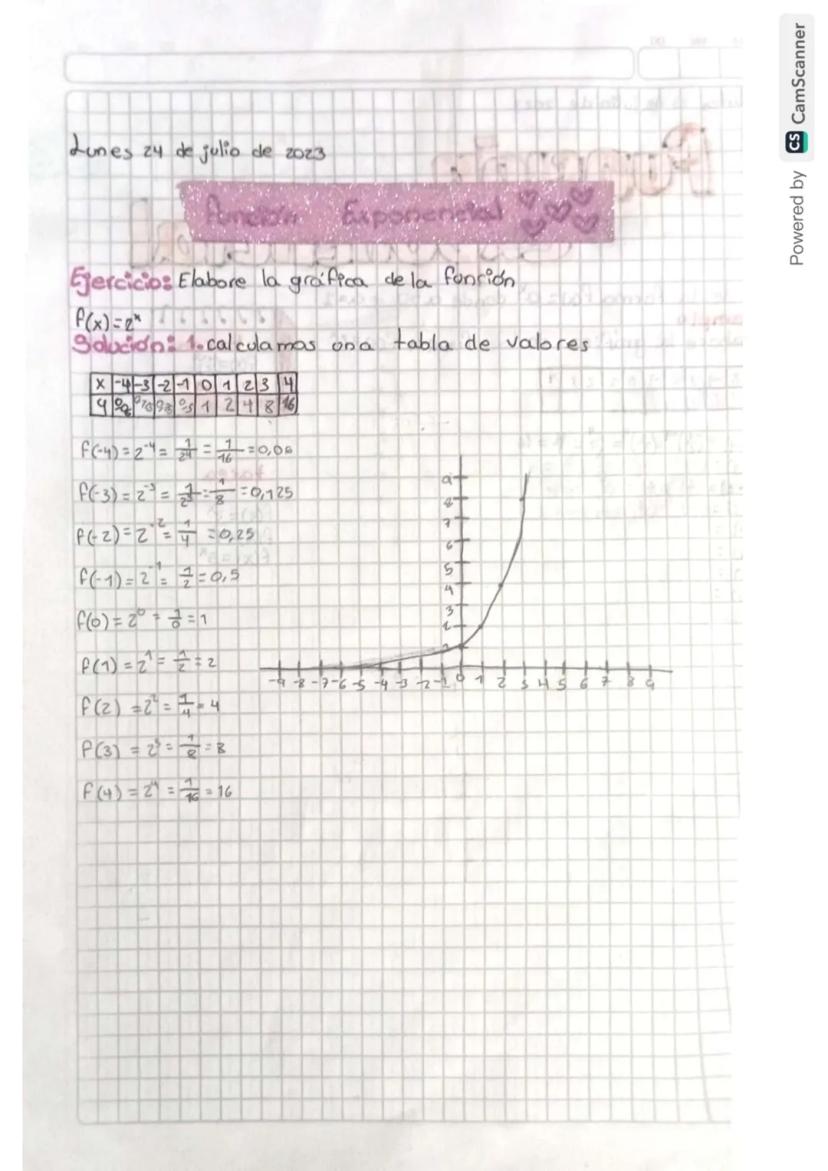 Lunes 24 de julio de 2023
Función Exponencial
Ejercicio: Elabore la gráfica de la función
f(x)=2ˣ
Solución: 1. calculamos una tabla de valores
x -4 -3 -2 -1 0 1 2 3 4
y 1 2 4 8 16
f(-4) = 2⁻⁴ = 1/2⁴ = 1/16 = 0,06
f(-3) = 2⁻³ = 1/2³ = 1/8 = 0,125
f(-2) = 2⁻² = 1/4 = 0,25
f(-1) = 2⁻¹ = 1/2 = 0,5
f(0) = 2⁰ = 1/0 = 1
f(1) = 2¹ = 1/2 = 2
f(2) = 2² = 1/4 = 4
f(3) = 2³ = 1/8 = 8
f(4) = 2⁴ = 1/16 = 16
9
8
7
6
5
4
3
2
1
-9 -8 -7 -6 -5 -4 -3 -2 -1 0 1 2 3 4 5 6 7 8 9
Powered by CS CamScanner